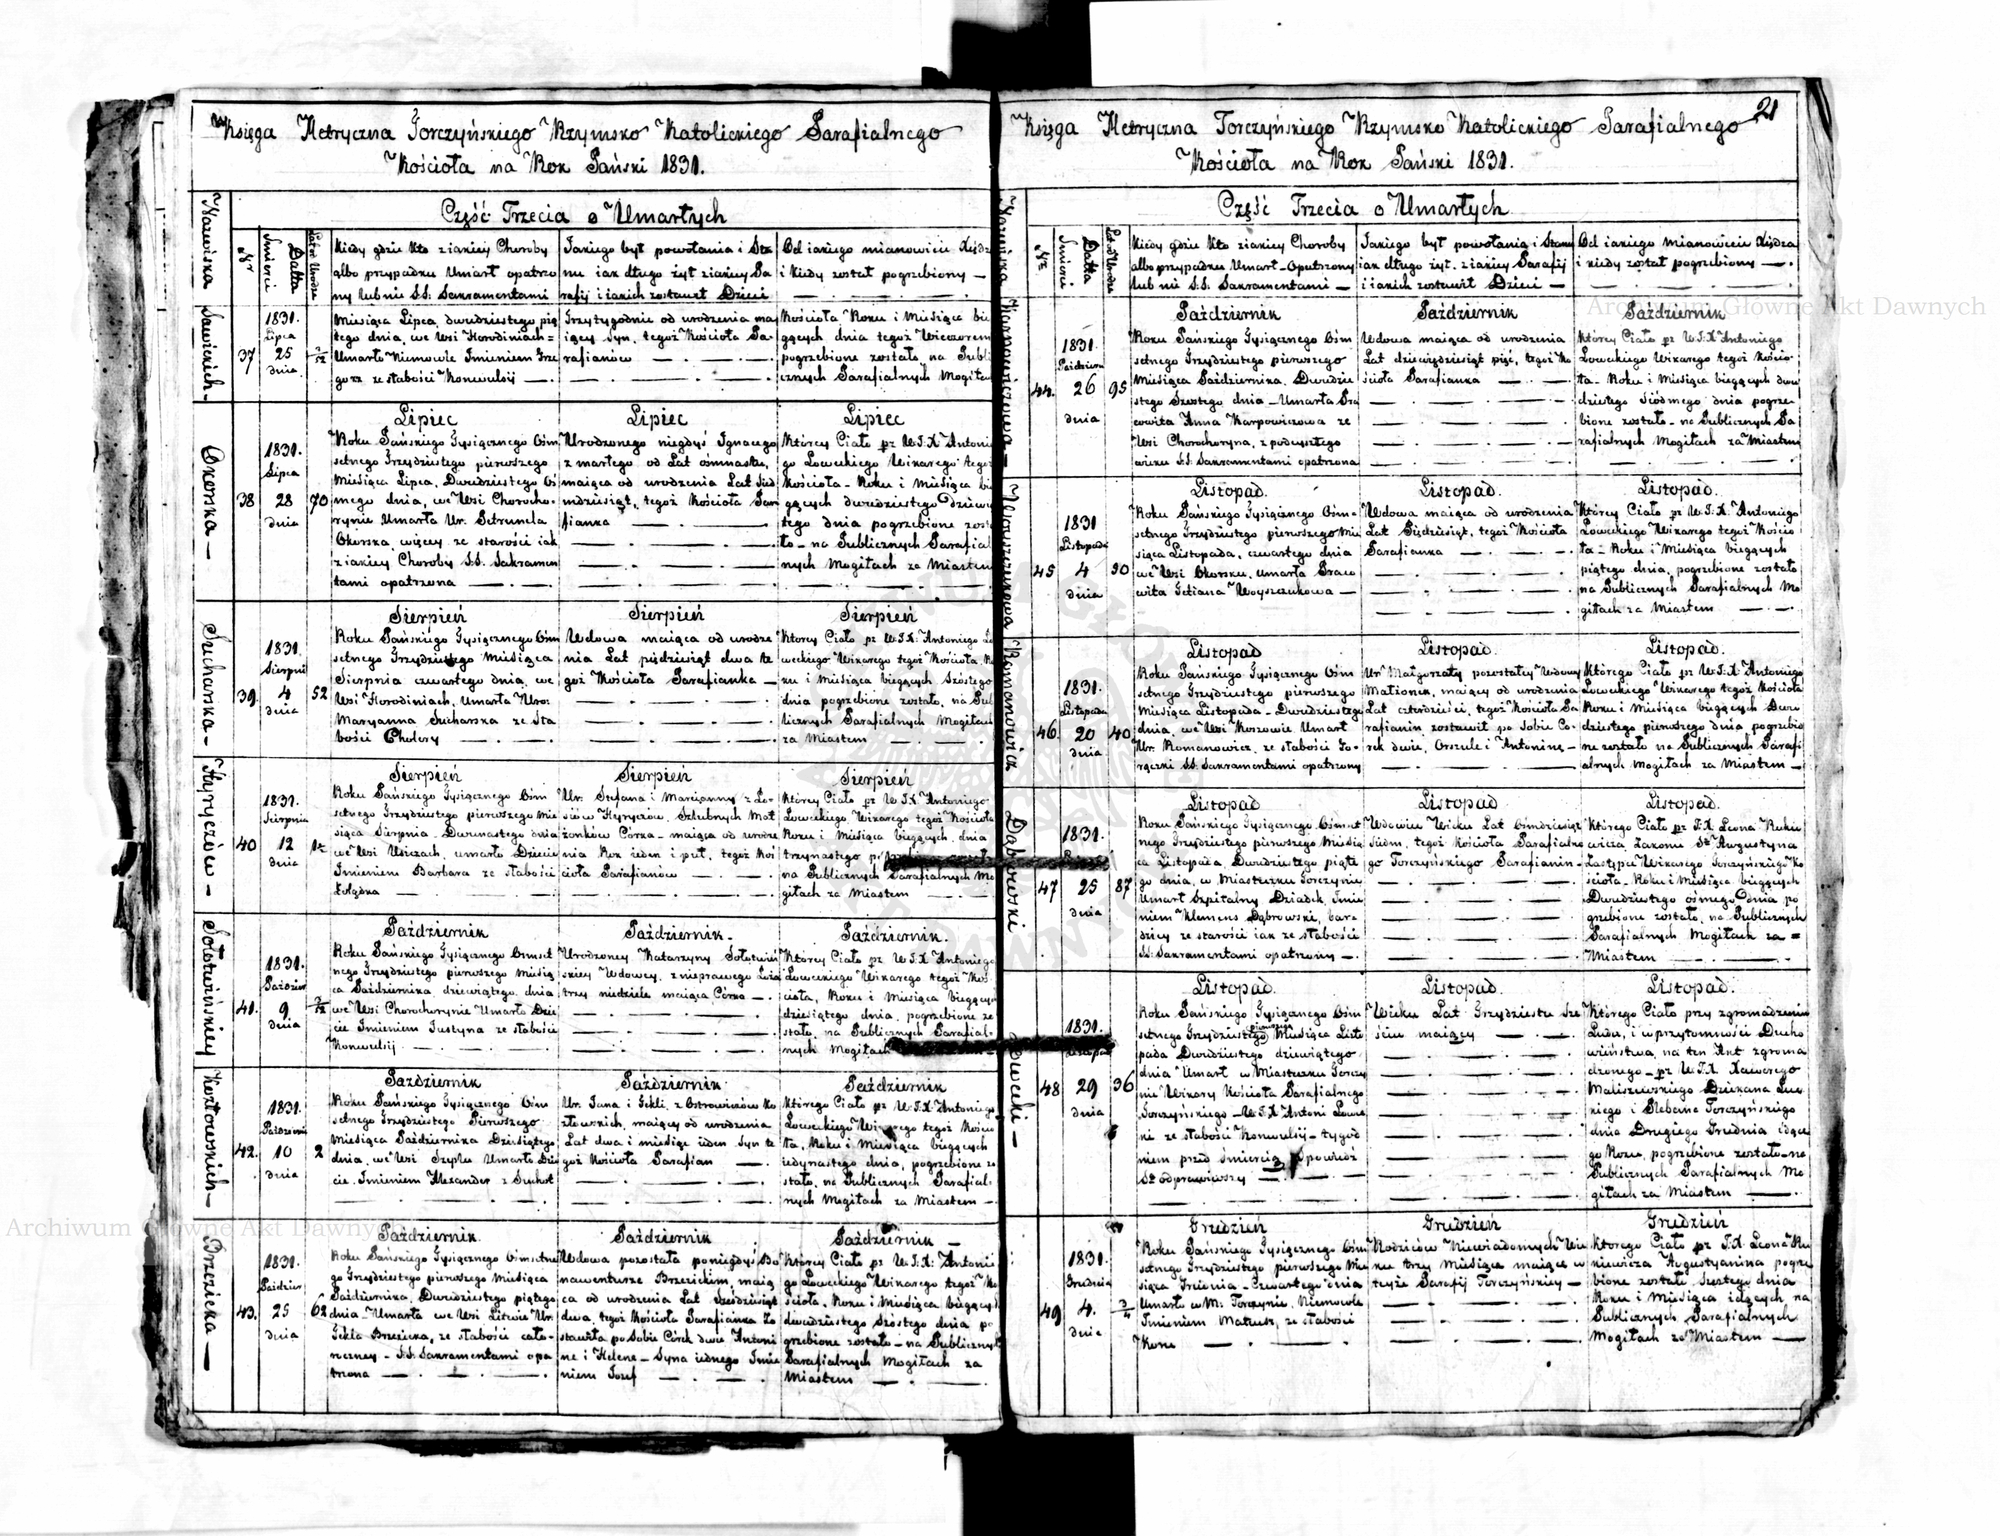 Księga Metryczna Torczyńskiego Rzymsko Katolickiego Parafialnego
Kościoła na Rok Pański 1831.
Część Trzecia o Umarłych
Nazwiska
Nr
Datta Śmierci
Lat od Urodze
Kiedy gdzie Kto z iakiey Choroby
albo przypadku Umarł opatrzo
ny lub nie S.S. Sakramentami
Jakiego był powołania i Sta
nu iak długo żył z iakiey Pa
rafij i iakich zostawił Dzieci
Od iakiego mianowicie Xiędza
i kiedy został pogrzebiony
Sawickich
37
1831.
Lipca
25
dnia
3/52
Miesiąca Lipca, dwudziestego pią
tego dnia, we Wsi Horodiniach
Umarło Niemowle Imieniem Grze
gorz ze słabości Konwulsij
Trzytygodnie od urodzenia ma
iący Syn, tegoż Kościoła Pa
rafianów
Kościoła Roku i Miesiąca bie
gących dnia tegoż Wieczorem
pogrzebione zostało na Publi
cznych Parafialnych Mogiłach
Okorska
38
1831.
Lipca
28
dnia
70
Lipiec
Roku Pańskiego Tysiącznego Ośm
setnego Trzydziestego pierwszego
Miesiąca Lipca, Dwudziestego Os
mego dnia, we Wsi Chorocho
rynie Umarła Ur. Petrunela
Okorska, więcey ze starości iak
z iakiey Choroby S.S. Sakramen
tami opatrzona
Lipiec
Urodzonego niegdyś Ignacego
zmarłego od Lat ośmnastu,
maiąca od urodzenia Lat Sied
mdziesiąt, tegoż Kościoła Para
fianka
Lipiec
Którey Ciało pz W.J.X Antonie
go Łoweckiego Wikarego tegoż
Kościoła Roku i Miesiąca bie
gących dwudziestego Dziewią
tego dnia pogrzebione zosta
ło na Publicznych Parafial
nych Mogiłach za Miastem
Sucharska
39.
1831.
Sierpni
4
dnia
52
Sierpień
Roku Pańskiego Tysiącznego Ośm
setnego Trzydziestego Miesiąca
Sierpnia czwartego dnia, we
Wsi Horodiniach, Umarła Uro:
Maryanna Sucharska ze sła
bości Cholery
Sierpień
Wdowa maiąca od urodze
nia Lat pięćdziesiąt dwa te
goż Kościoła Parafianka
Sierpień
Ktorey Ciało pz W.J.X: Antoniego Ło
weckiego Wikarego tegoż Kościoła, Ro
ku i Miesiąca biegących Szóstego
dnia pogrzebione zostało, na Pub
licznych Parafialnych Mogiłach
za Miastem
Hyryczów
40
1831.
Sierpnia
12
dnia
Sierpień
Roku Pańskiego Tysiącznego Ośm
setnego Trzydziestego pierwszego Mie
siąca Sierpnia, Dwunastego dnia
we Wsi Usiczach, umarło Dziecie
Imieniem Barbara ze słabości
żołądka
Sierpień
Ur. Stefana i Maryanny z Ło
siów Hyryczów, Szlubnych Mał
żonków Córka maiąca od urodze
nia Rok ieden i puł, tegoż Koś
cioła Parafianów
Sierpień
Którey Ciało pz W.J.X Antoniego
Łoweckiego Wikarego tegoż Kościoła
Roku i Miesiąca biegących, dnia
trzynastego
na Publicznych Parafialnych Mo
giłach za Miastem
Sołotwińskiey
41.
1831.
Paździer
9
dnia
3/52
Październik
Roku Pańskiego Tysiącznego Ośmset
nego Trzydziestego pierwszego Miesią
ca Października, dziewiątego dnia
we Wsi Chorochorynie Umarło Dzie
cie Imieniem Justyna ze słabości
Konwulsij
Październik
Urodzoney Katarzyny Sołotwiń
skiey Wdowey, z nieprawego Łoża
trzy niedziele maiąca Córka
Październik.
Którey Ciało pz W.J.X Antoniego
Łoweckiego Wikarego tegoż Koś
cioła, Roku i Miesiąca biegących
dziesiątego dnia, pogrzebione zo
stało, na Publicznych Parafial
nych Mogiłach
Kozłowskich
42.
1831.
Październi
10
dnia
2
Październik
Roku Pańskiego Tysiącznego Ośm
setnego Trzydziestego Pierwszego
Miesiąca Października Dziesiątego
dnia, we Wsi Szeplu Umarło Dzie
cie, Imieniem Alexander z Suchot
Październik
Ur. Jana i Tekli, z Ostrowiczów Ko
złowskich, maiący od urodzenia
Lat dwa i miesiąc ieden Syn te
goż Kościoła Parafian
Październik
Którego Ciało pz W.J.X Antoniego
Łoweckiego Wikarego tegoż Kościo
ła, Roku i Miesiąca biegących
iedynastego dnia, pogrzebione zo
stało, na Publicznych Parafial
nych Mogiłach za Miastem
Brzezicka
43.
1831.
Paździer
25
dnia
62
Październik
Roku Pańskiego Tysiącznego Ośmsetne
go Trzydziestego pierwszego Miesiąca
Października, Dwudziestego piątego
dnia Umarła we Wsi Litwie Ur.
Tekla Brzezicka, ze słabości cało
roczney S.S. Sakramentami opa
trzona
Październik
Wdowa pozostała po niegdyś Bo
nawenturze Brzezickim, maią
ca od urodzenia Lat Sześćdziesiąt
dwa, tegoż Kościoła Parafianka Zo
stawiła po Sobie Córek dwie Antoni
ne i Helene Syna iednego Imie
niem Józef
Październik
Którey Ciało pz W.J.X: Antonie
go Łoweckiego Wikarego tegoż Ko
ścioła, Roku i Miesiąca biegących
dwudziestego Szóstego dnia po
grzebione zostało na Publicznych
Parafialnych Mogiłach za
Miastem
21
Księga Metryczna Torczyńskiego Rzymsko Katolickiego Parafialnego
Kościoła na Rok Pański 1831.
Część Trzecia o Umarłych
Nazwiska
Nr
Datta Śmierci
Lat od Urodze
Kiedy gdzie Kto z iakiey Choroby
albo przypadku Umarł Opatrzony
lub nie S.S. Sakramentami
Jakiego był powołania i Stanu
iak długo żył, z iakiey Parafij
i iakich zostawił Dzieci
Od iakiego mianowicie Xiędza
i kiedy został pogrzebiony
Karpowiczowa
44.
1831.
Paździer
26
dnia
95
Październik
Roku Pańskiego Tysiącznego Ośm
setnego Trzydziestego pierwszego
Miesiąca Października. Dwudzie
stego Szostego dnia Umarła Pra
cowita Anna Karpowiczowa ze
Wsi Chorochoryna, z podeszłego
wieku S.S. Sakramentami opatrzona
Październik
Wdowa maiąca od urodzenia
Lat dziewięćdziesiąt pięć, tegoż Ko
ścioła Parafianka
Październik
Którey Ciało pz W.J.X Antoniego
Łoweckiego Wikarego tegoż Kościo
ła Roku i Miesiąca biegących dwu
dziestego Siódmego dnia pogrze
bione zostało na Publicznych Pa
rafialnych Mogiłach za Miastem
Woyszczukowa
45
1831
Listopada
4
dnia
50
Listopad.
Roku Pańskiego Tysiącznego Ośm
setnego Trzydziestego pierwszego Mie
siąca Listopada, czwartego dnia
we Wsi Okorsku, umarła Praco
wita Tetiana Woyszczukowa
Listopad.
Wdowa maiąca od urodzenia
Lat Pięćdziesiąt, tegoż Kościoła
Parafianka
Listopad.
Którey Ciało pz W.J.X Antoniego
Łoweckiego Wikarego tegoż Kościo
ła Roku i Miesiąca biegących
piątego dnia, pogrzebione zostało
na Publicznych Parafialnych Mo
giłach za Miastem
Romanowicz
46.
1831.
Listopada
20
dnia
40
Listopad
Roku Pańskiego Tysiącznego Ośm
setnego Trzydziestego pierwszego
Miesiąca Listopada Dwudziestego
dnia, we Wsi Koszowie Umarł
Ur. Romanowicz, ze słabości Go
rączki S.S. Sakramentami opatrzony
Listopad.
Ur Małgorzaty pozostałey Wdowy
Małżonek, maiący od urodzenia
Lat czterdzieści, tegoż Kościoła Pa
rafianin zostawił po Sobie Có
rek dwie, Orszule i Antonine
Listopad.
Którego Ciało pz W.J.X Antoniego
Łoweckiego Wikarego tegoż Kościoła
Roku i Miesiąca biegących Dwu
dziestego pierwszego dnia pogrzebio
ne zostało na Publicznych Parafi
alnych Mogiłach za Miastem
Dąbrowski
47
1831.
25
dnia
87
Listopad
Roku Pańskiego Tysiącznego Ośmset
nego Trzydziestego pierwszego Miesią
ca Listopada, Dwudziestego piąte
go dnia, w Miasteczku Torczynie
Umarł Szpitalny Dziadek, Imie
niem Klemens Dąbrowski, bar
dziey ze starości iak ze słabości
S.S. Sakramentami opatrzony
Listopad
Wdowiec Wieku Lat Ośmdziesiąt
Siedm, tegoż Kościoła Parafialne
go Torczyńskiego Parafianin
Listopad.
Którego Ciało pz J.X Leona Rukie
wicza Zakonu St Augustyna
Zastępcę Wikarego Torczyńskiego Ko
ścioła, Roku i Miesiąca biegących
Dwudziestego osmego Dnia po
grzebione zostało, na Publicznych
Parafialnych Mogiłach za
Miastem
Łowecki
48
1831.
29
dnia
36
Listopad.
Roku Pańskiego Tysiącznego Ośm
setnego Trzydziestego pierwszego Miesiąca Listo
pada Dwudziestego dziewiątego
dnia Umarł w Miasteczku Torczy
nie Wikary Kościoła Parafialnego
Torczyńskiego W.J.X Antoni Łowec
ki ze słabości Konwulsij tygod
niem przed śmiercią Spowiedź
St odprawiwszy
Listopad.
Wieku Lat Trzydzieści Sze
ściu maiący
Listopad.
Którego Ciało przy zgromadzeniu
Ludu, i w przytomności Ducho
wieństwa, na ten Akt zgroma
dzonego pz W.J.X Xawerego
Maliszewskiego Dziekana Łuc
kiego i Plebana Torczyńskiego
dnia Drugiego Grudnia idące
go Roku, pogrzebione zostało na
Publicznych Parafialnych Mo
giłach za Miastem
49
1831.
Grudnia
4.
dnia
3/4
Grudzień
Roku Pańskiego Tysiącznego Ośm
setnego Trzydziestego pierwszego Mie
siąca Grudnia Czwartego dnia
Umarło w M: Torczynie, Niemowle
Imieniem Mateusz, ze słabości
Kone
Grudzień
Rodziców Niewiadomych Wie
ku trzy Miesiące maiące w
teyże Parafij Torczyńskiey
Grudzień
Ktorego Ciało pz J.X Leona Ru
kiewicza Augustyanina pogrze
bione zostało, Szóstego dnia
Roku i Miesiąca idących na
Publicznych Parafialnych
Mogiłach za Miastem
Archiwum Główne Akt Dawnych
Archiwum Główne Akt Dawnych